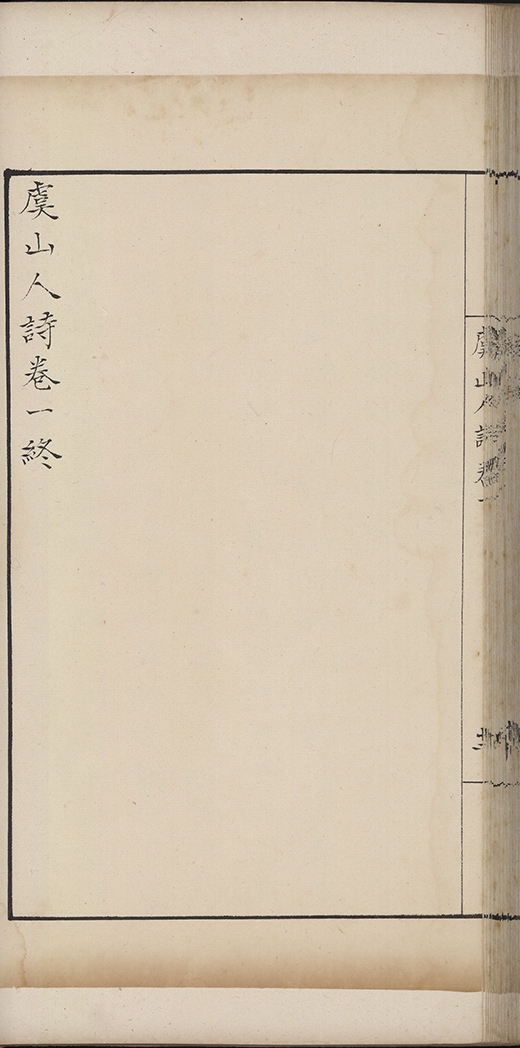 虞山人詩卷一
虞山人詩卷一終